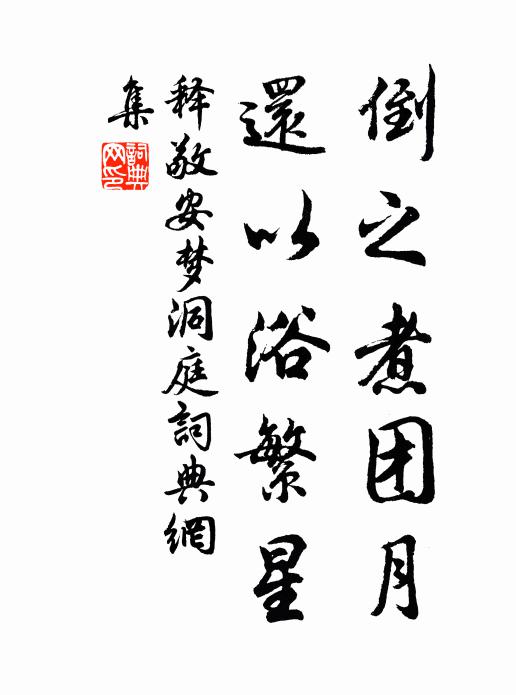 倒之煮团月
還以浴繁星
释敬安梦洞庭詞典網
集
詞典网印